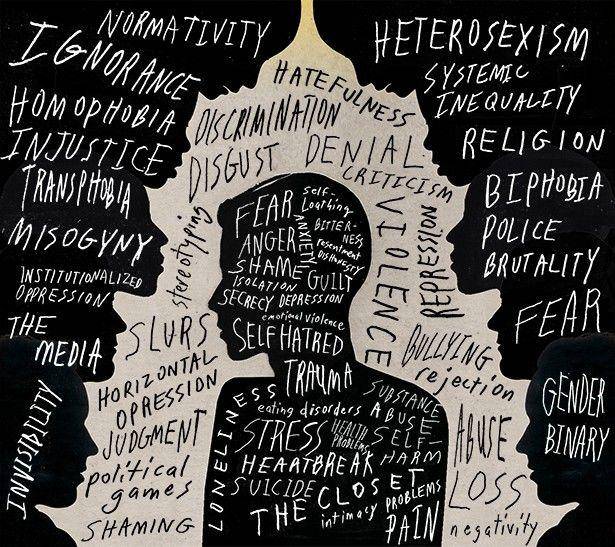 NORMATIVITY
IGNORANCE
HOMOPHOBIA
INJUSTICE
TRANSPHOBIA
MISOGYNY
INSTITUTIONALIZED
OPPRESSION
THE
MEDIA
INVISIBILITY
HETEROSEXISM
SYSTEMIC
INEQUALITY
RELIGION
BIPHOBIA
POLICE
BRUTALITY
FEAR
GENDER
BINARY
HATEFULNESS
DISCRIMINATION
DISGUST
DENIAL
CRITICISM
stereotyping
VIOLENCE
REPRESSION
SLURS
HORIZONTAL
OPRESSION
JUDGMENT
political
games
SHAMING
BULLYING
rejection
ABUSE
LOSS
negativity
FEAR
self-
Loathing
ANXIETY
BITTER-
NESS
ANGER
resentment
DISHONESTY
SHAME
GUILT
ISOLATION
SECRECY DEPRESSION
emotional violence
SELF HATRED
TRAUMA
LONELINESS
SUBSTANCE
ABUSE
eating disorders
STRESS
HEALTH
PROBLEMS
SELF-
HARM
HEARTBREAK
SUICIDE
THE CLOSET
intimacy PROBLEMS
PAIN